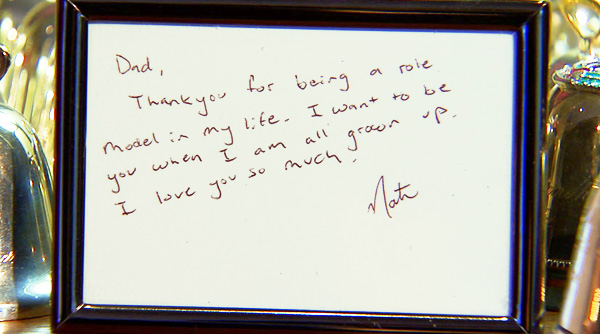 Dad,
Thankyou for being a role
model in my life. I want to be
you when I am all grown up.
I love you so much.
Nate